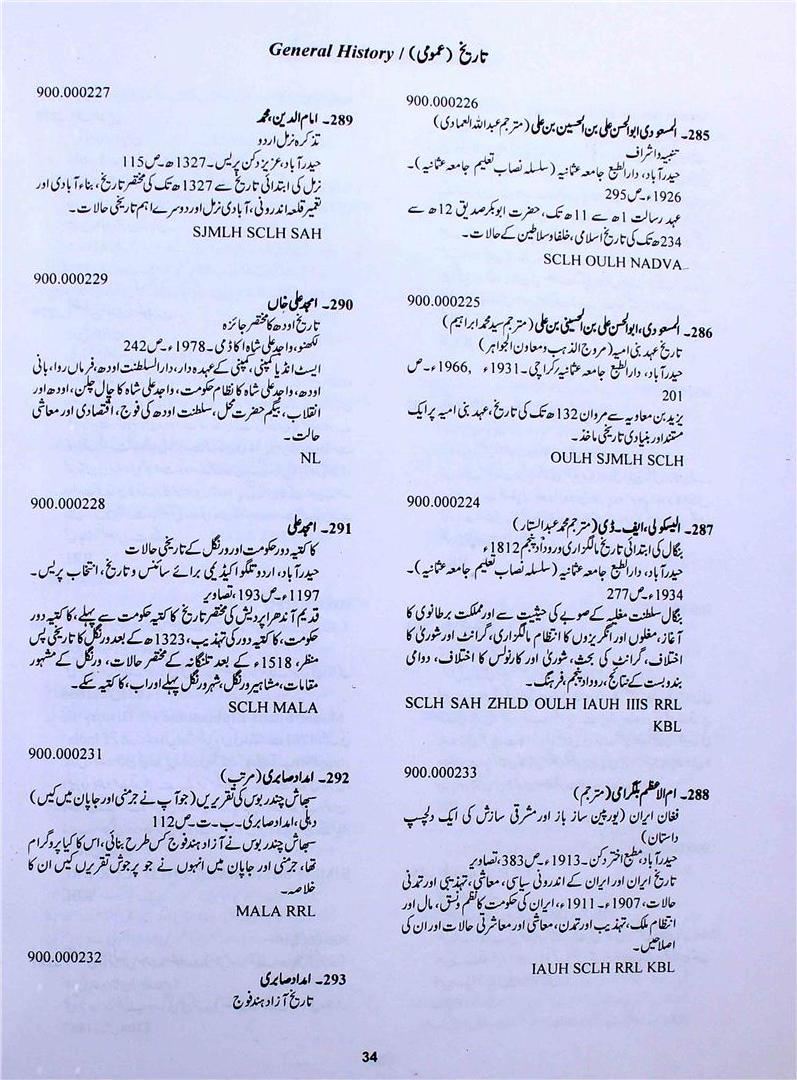 تاریخ (عمومی) / General History
900.000226
285۔ المسعودی ابوالحسن علی بن الحسین بن علی (مترجم عبداللہ العمادی)
تنبیہ و اشراف
حیدرآباد، دارالطبع جامعہ عثمانیہ (سلسلہ نصاب تعلیم جامعہ عثمانیہ)۔
1926ء۔ ص295
عہد رسالت 1ھ سے 11ھ تک، حضرت ابوبکر صدیق 12ھ سے
234ھ تک کی تاریخ اسلامی، خلفا و سلاطین کے حالات۔
SCLH OULH NADVA
900.000225
286۔ المسعودی، ابوالحسن علی بن الحسینی بن علی (مترجم سید محمد ابراہیم)
تاریخ عہد بنی امیہ (مروج الذہب و معاون الجواہر)
حیدرآباد، دارالطبع جامعہ عثمانیہ/کراچی۔ 1931ء ,1966ء۔ ص
201
یزید بن معاویہ سے مروان 132ھ تک کی تاریخ، عہد بنی امیہ پر ایک
مستند اور بنیادی تاریخی ماخذ۔
OULH SJMLH SCLH
900.000224
287۔ الیسکولی، ایف۔ ڈی (مترجم محمد عبدالستار)
بنگال کی ابتدائی تاریخ مالگزاری و روداد پنجم 1812ء
حیدرآباد، دارالطبع جامعہ عثمانیہ (سلسلہ نصاب تعلیم جامعہ عثمانیہ)۔
1934ء۔ ص277
بنگال سلطنت مغلیہ کے صوبے کی حیثیت سے اور مملکت برطانوی کا
آغاز، مغلوں اور انگریزوں کا انتظام مالگزاری، گرانٹ اور شوری کا
اختلاف، گرانٹ کی بحث، شوریٰ اور کارنولس کا اختلاف، دوامی
بندوبست کے نتائج، روداد پنجم، فرہنگ۔
SCLH SAH ZHLD OULH IAUH IIIS RRL
KBL
900.000233
288۔ ام الاعظم بلگرامی (مترجم)
فغان ایران (یورپین ساز باز اور مشرقی سازش کی ایک دلچسپ
داستان)
حیدرآباد، مطبع اختر دکن۔ 1913ء۔ ص383، تصاویر
تاریخ ایران اور ایران کے اندرونی سیاسی، معاشی، تہذیبی اور تمدنی
حالات، 1907ء۔ 1911ء، ایران کی حکومت کا نظم و نسق، مال اور
انتظام ملک، تہذیب اور تمدن، معاشی اور معاشرتی حالات اور ان کی
اصلاحیں۔
IAUH SCLH RRL KBL
900.000227
289۔ امام الدین، محمد
تذکرہ نرمل اردو
حیدرآباد، عزیز دکن پریس۔ 1327ھ۔ ص115
نرمل کی ابتدائی تاریخ سے 1327ھ تک کی مختصر تاریخ، بناء آبادی اور
تعمیر قلعہ اندرونی، آبادی نرمل اور دوسرے اہم تاریخی حالات۔
SJMLH SCLH SAH
900.000229
290۔ امجد علی خاں
تاریخ اودھ کا مختصر جائزہ
لکھنؤ، واجد علی شاہ اکاڈمی۔ 1978ء۔ ص242
ایسٹ انڈیا کمپنی، کمپنی کے عہدہ دار، دارالسلطنت اودھ، فرماں روا، بانی
اودھ، واجد علی شاہ کا نظام حکومت، واجد علی شاہ کا چال چلن، اودھ اور
انقلاب، بیگم حضرت محل، سلطنت اودھ کی فوج، اقتصادی اور معاشی
حالت۔
NL
900.000228
291۔ امجد علی
کاکتیہ دور حکومت اور ورنگل کے تاریخی حالات
حیدرآباد، اردو تلگو اکیڈیمی برائے سائنس و تاریخ، انتخاب پریس۔
1197ء۔ ص193، تصاویر
قدیم آندھرا پردیش کی مختصر تاریخ کاکتیہ حکومت سے پہلے، کاکتیہ دور
حکومت، کاکتیہ دور کی تہذیب، 1323ھ کے بعد ورنگل کا تاریخی پس
منظر، 1518ء کے بعد تلنگانہ کے مختصر حالات، ورنگل کے مشہور
مقامات، مشاہیر ورنگل، شہر ورنگل پہلے اور اب، کاکتیہ سکے۔
SCLH MALA
900.000231
292۔ امداد صابری (مرتب)
سبھاش چندر بوس کی تقریریں (جو آپ نے جرمنی اور جاپان میں کیں)
دہلی، امداد صابری۔ ب۔ ت۔ ص112
سبھاش چندر بوس نے آزاد ہند فوج کس طرح بنائی، اس کا کیا پروگرام
تھا، جرمنی اور جاپان میں انہوں نے جو پرجوش تقریریں کیں ان کا
خلاصہ۔
MALA RRL
900.000232
293۔ امداد صابری
تاریخ آزاد ہند فوج
34